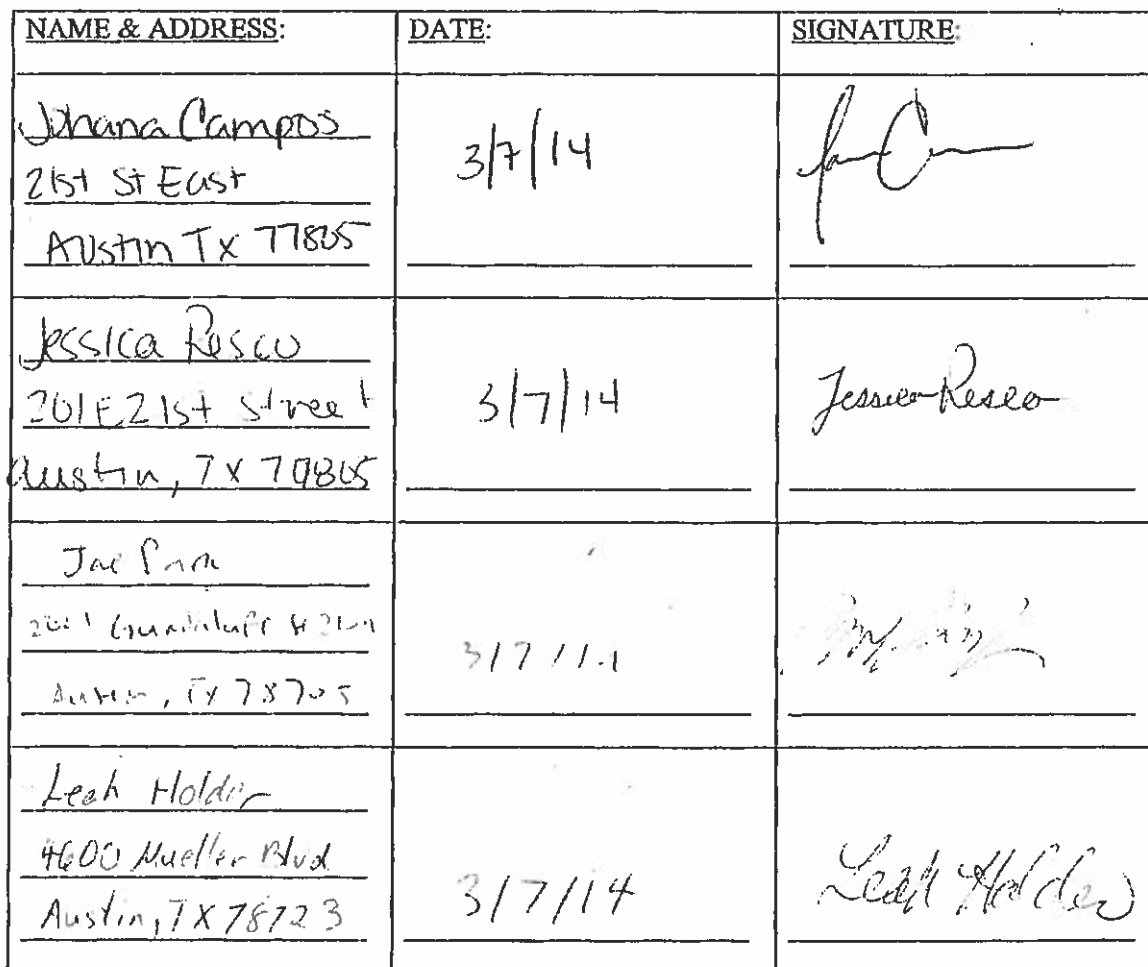 NAME & ADDRESS: DATE: SIGNATURE:
Johana Campos
21st St East
Austin Tx 77805
3/7/14
Jessica Resco
201 E 21st Street
Austin, TX 79805
3/7/14
Jessica Resco
Jae
Austin, Tx 78705
3/7/14
Leah Holder
4600 Mueller Blvd
Austin, TX 78723
3/7/14
Leah Holder